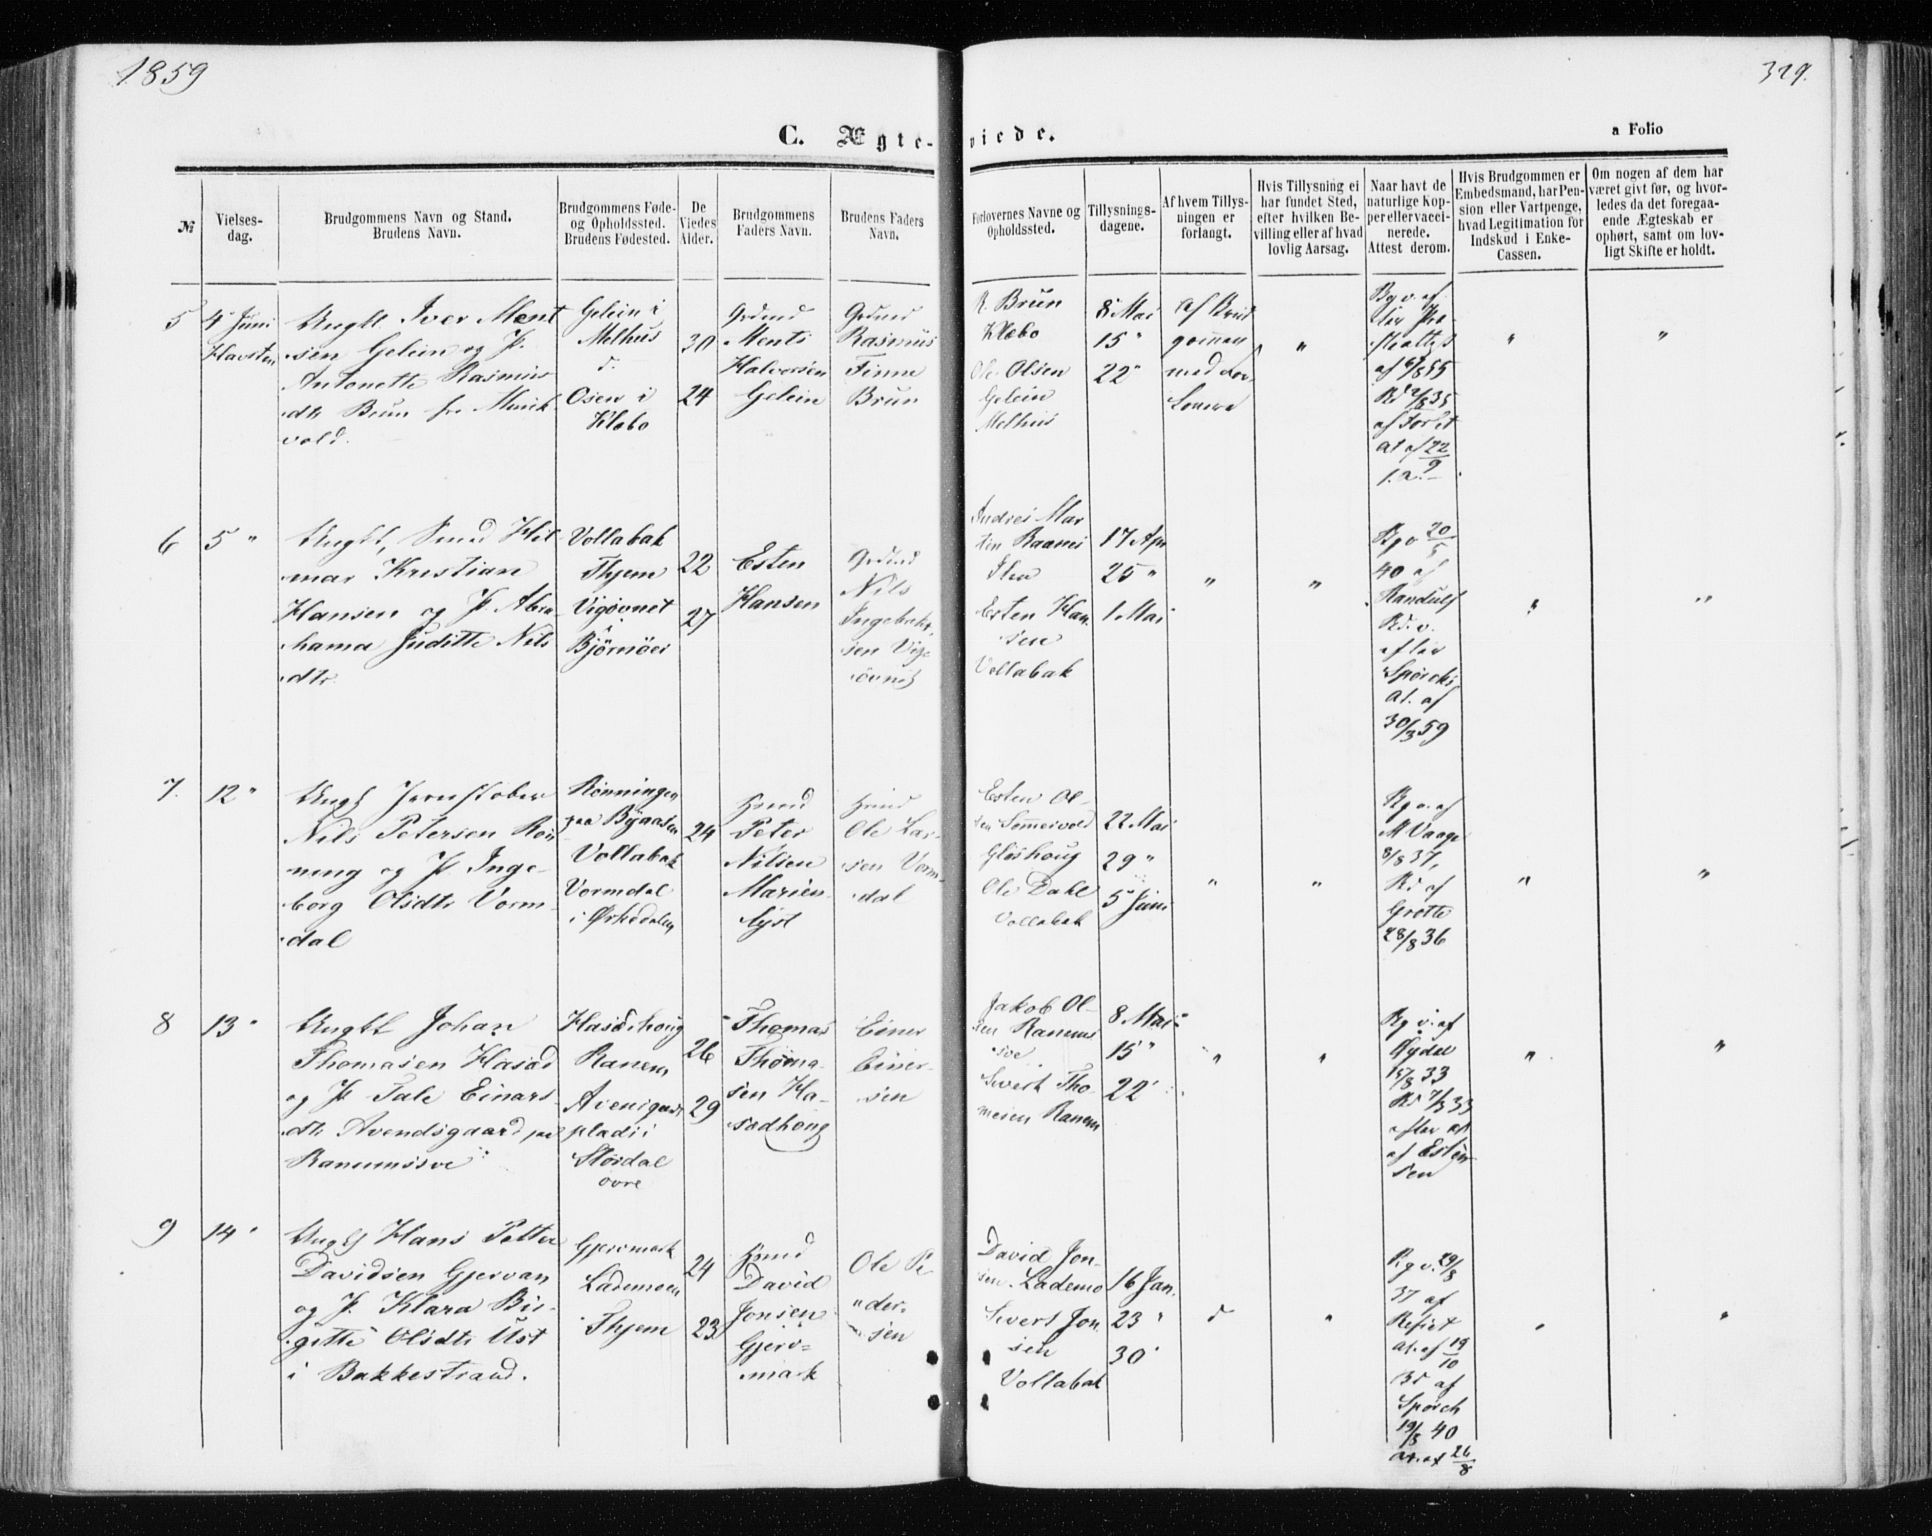 1859
329.
C. Ægte-
viede.
a Folio
№
Vielses-
dag.
Brudgommens Navn og Stand.
Brudens Navn.
Brudgommens Føde-
og Opholdssted.
Brudens Fødested.
De
Viedes
Alder.
Brudgommens
Faders Navn.
Brudens Faders
Navn.
Forlovernes Navne og
Opholdssted.
Tillysnings-
dagene.
Af hvem Tillys-
ningen er
forlangt.
Hvis Tillysning ei
har fundet Sted,
efter hvilken Be-
villing eller af hvad
lovlig Aarsag.
Naar havt de
naturlige Kop-
per eller vacci-
nerede.
Attest derom.
Hvis Brudgommen er
Embedsmand, har Pen-
sion eller Vartpenge,
hvad Legitimation for
Indskud i Enke-
Cassen.
Om nogen af dem har
været givt før, og hvor-
ledes da det foregaa-
ende Ægteskab er
ophørt, samt om lov-
ligt Skifte er holdt.
5
4 Juni
Havsten
Ungk. Iver Ment
sen Gelein og P.
Antonette Rasmus
dtr Brun fra Munk
vold.
Gelein i
Melhus
Osen i
Klebo
30
24
Grdmd
Ments
Halversen
Gelein
Grdmd
Rasmus
Finne
Brun
R. Brun
Klebo
Ole Olsen
Gelein
Melhus
8 Mai
15 "
22 "
af Brud
gommen
med For-
lovere
"
Bg v. af
af 6/8 55
Bd 2/8 35
af
at af 22/9
"
"
6
5 "
Ungk.
mar Kristian
Hansen og P. Abra
hama Juditte Nils
dtr.
Vollabak
Thjem
Vigøvnet
i
Bjørnøer
22
27
Esten
Hansen
Grdmd
Nils
Ingebrkt
sen Vig
øvnet
Andres Mar
tin Raanes
Ilen
Esten Han
sen
Vollabak
17 Apr
25 "
1 Mai
"
"
Bg v 20/5
40 af
Randulf
Bd. v.
efter
Spørcks
at. af
30/3 59
"
"
7.
12 "
Ungk
Nils Petersen Røn
ning og P. Inge-
borg Olsdtr Vorm-
dal
Rønningen
paa Byaasen
Vollabak
Vormdal
i Ørkedalen
24
Hmd
Peter
Nilsen
Marien
lyst
Hmd
Ole Lar
sen Vorm-
dal
Esten Ol-
sen Sommervold
Gløshoug
Ole Dahl
Vollabak
22 Mai
29 "
5 Juni
"
"
Bg v. af
M Vaage
8/8 37,
Bd af
Grøtte
28/8 36
"
"
8
13 "
Ungk Johan
Thomasen Hasad
og P. Tale Einars
dtr Avendsgaard paa
Ranumsve
Hasadhoug
Ranem
pladsi
Størdal
øvre
26
29
Thomas
Thoma-
sen Ha-
sadhoug
Einer
Einer-
sen
Jakob Ol-
sen Ranums
ve
Sivert Tho-
mesen Ranem
8 Mai
15 "
22 "
"
"
Bg v. af
Rydal
15/8 33
Bd 7/8 33
efter at
af Esten
sen
"
"
9
14 "
Ungk Hans Petter
Davidsen Gjervan
og P. Klara Bir-
gitte Olsdtr Ust
i Bakkestrand.
Gjervmark
Lademoen
Thjem
24
23
Hmd
David
Jonsen
Gjerv-
mark
Ole Pe
der-
sen
David Jon-
sen. Lademo
Sivert Jon
sen
Vollabak
16 Jan.
23 "
30 "
d
"
Bg v. 29/8
37 af
at. af 19/10
Bd af
Spørck
19/5 40
at. af 26/8
"
"